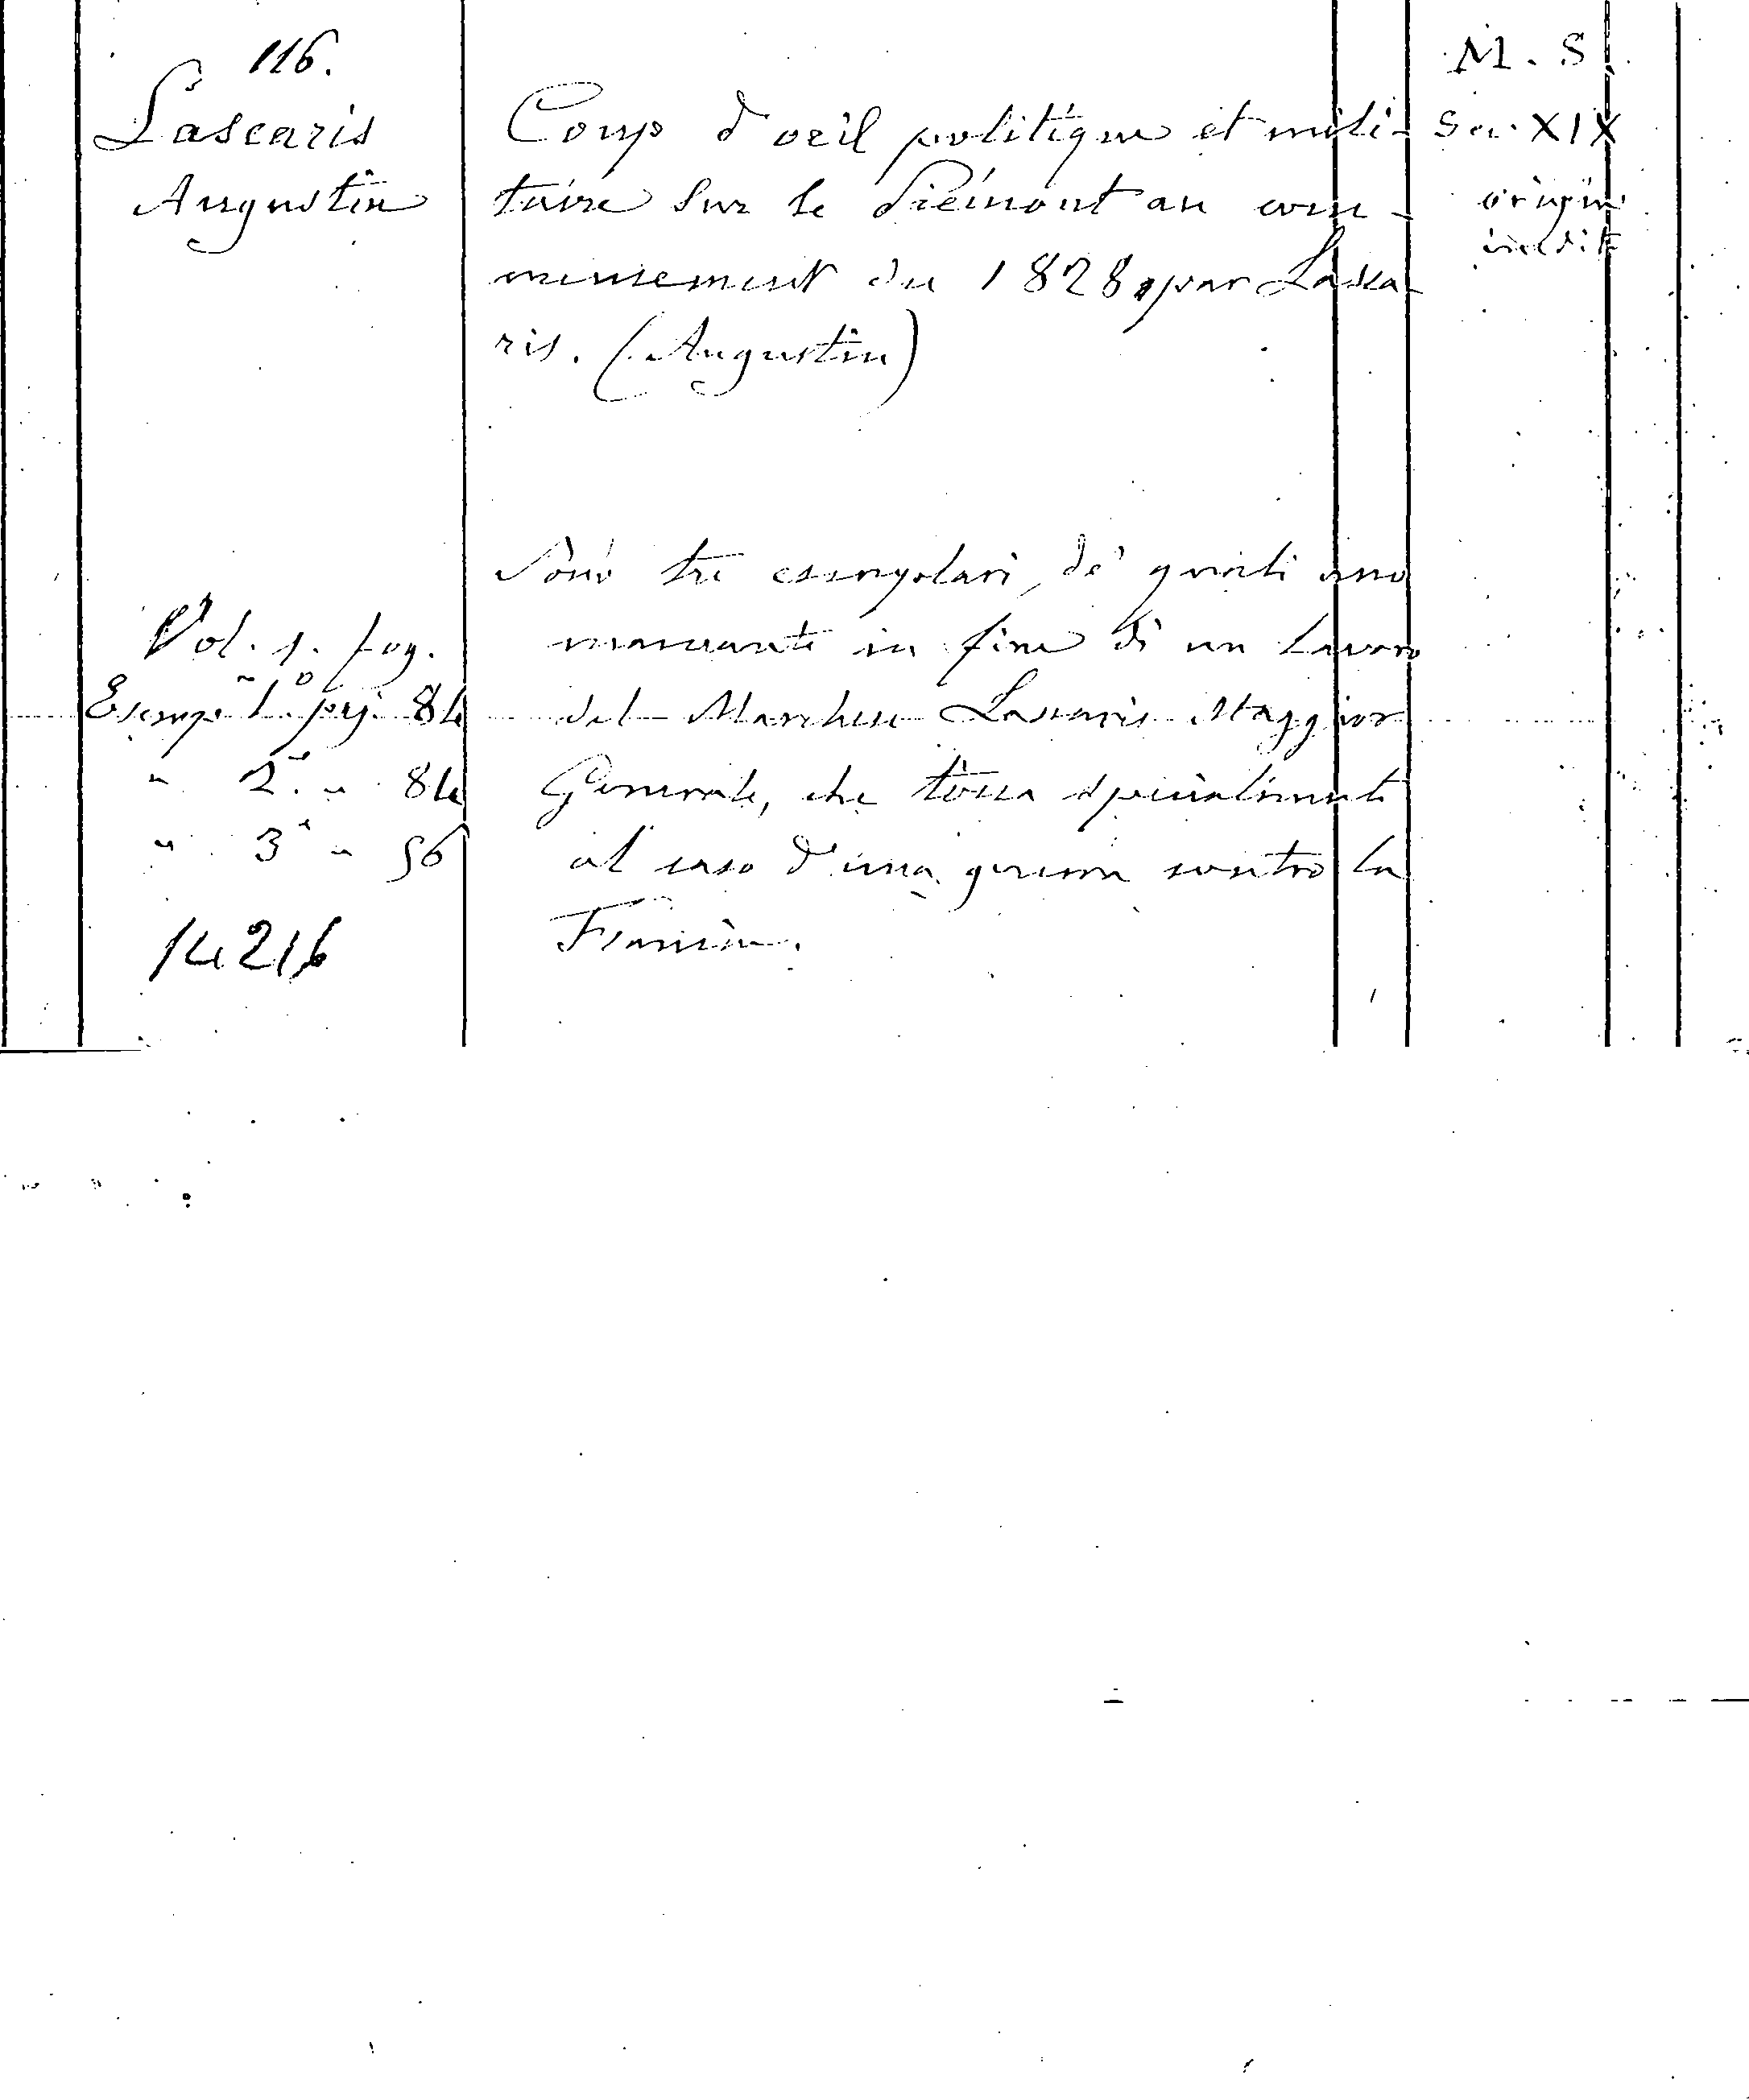 116.
Lascaris
Augustin
Coup d'oeil politique et mili-
taire sur le Piémont au com-
mencement du 1828, par Lasca
ris. (Augustin)
M. S.
Sec. XIX
origin.
inedito
Vol. 1. fog.
Esemp. 1.º pag. 84
" 2.º " 84
" 3.º " 96
14216
Sono tre esemplari, de' quali uno
mancante in fine di un lavoro
del Marchese Lascaris Maggior
Generale, che tocca specialmente
al caso d'una guerra contro la
Francia.